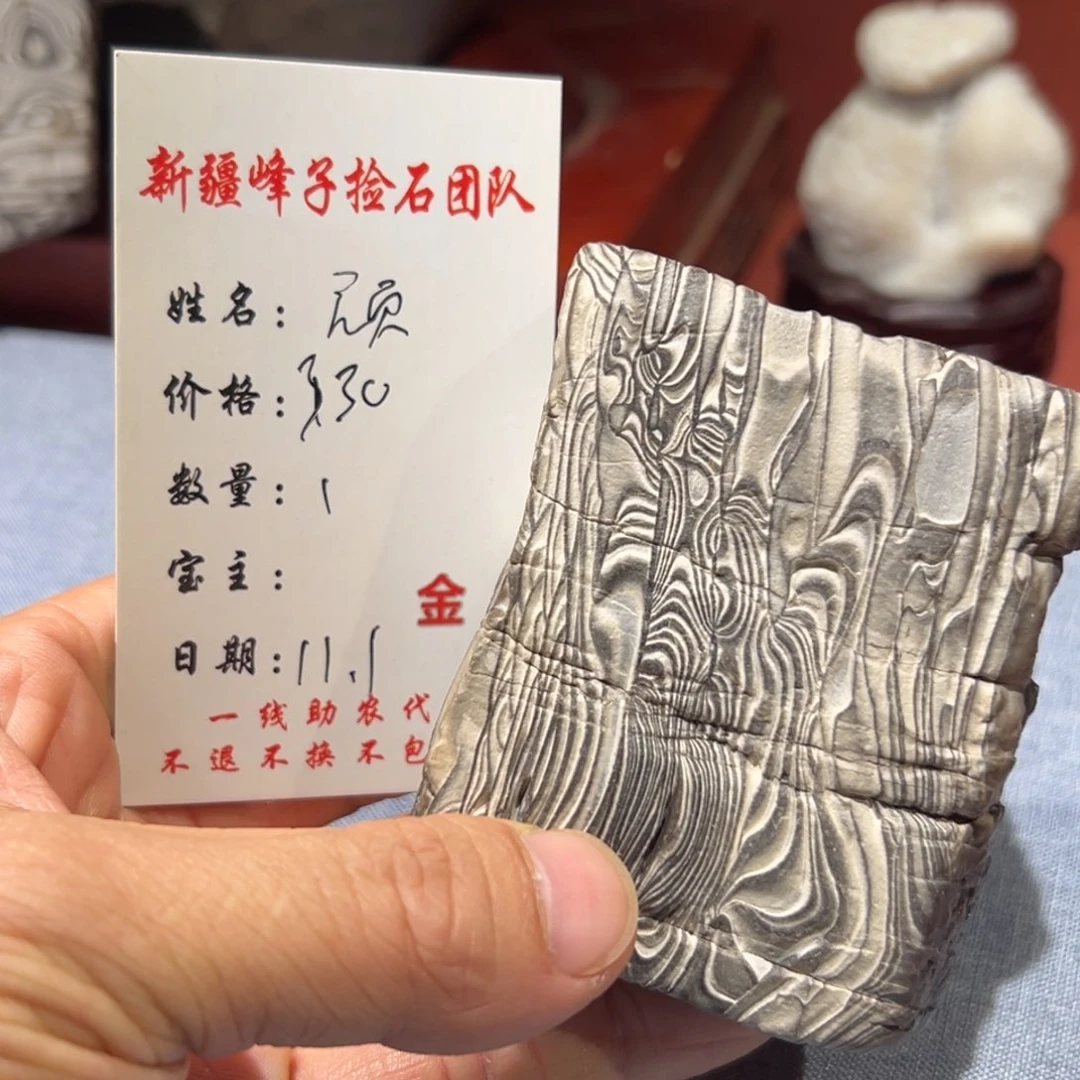 新疆峰子捡石团队
姓名: 顾
价格: 330
数量: 1
宝主:
金
日期: 11.1
一线助农代
不退不换不包